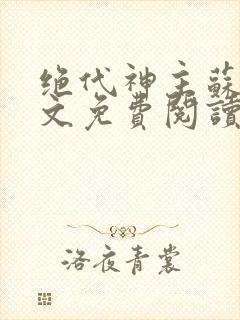 绝代神主蘇
文免費閱讀
洛夜青裳